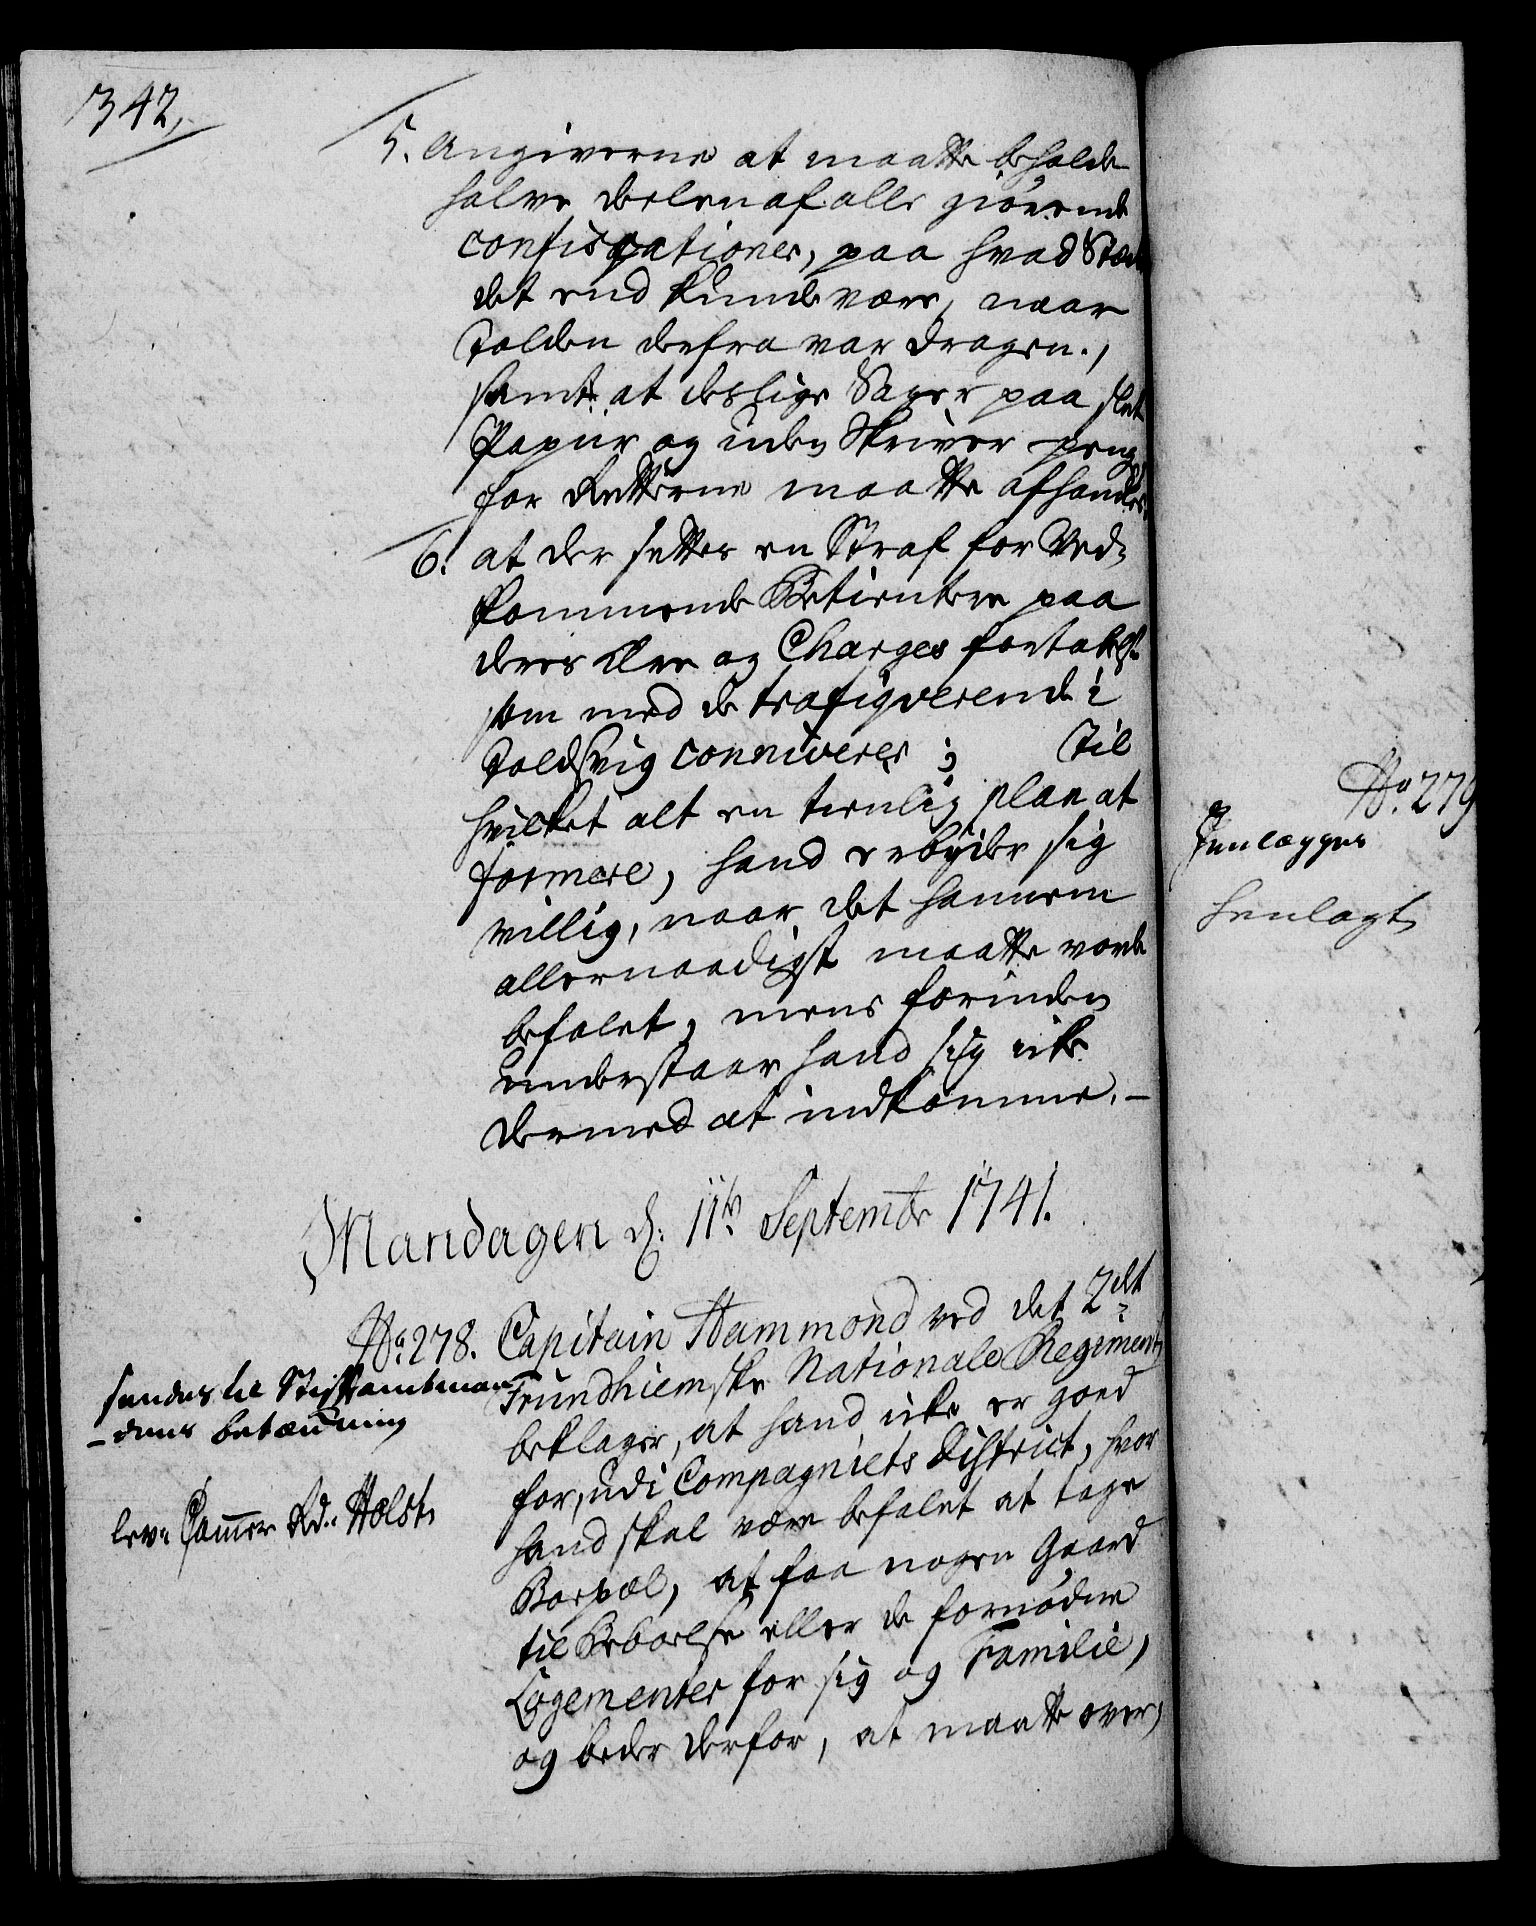 342,
5. Angiverne at maatte beholde
halve deelen af alle giørende
confiscationer, paa hvad Stæd
det end kunde være, naar
Tolden derfra var dragen.,
samt at deslige Sager paa slet
Papiir og uden Skriver penge
for Retterne maatte afhandles.
6. at der settes en Straf for Ved-
kommende Betientere paa
deres Ære og Charges fortabelse
som med de trafiqverende i
Toldsvig conniverer; Til
hvilket alt en tienlig plan at
formere, hand erbyder sig
villig, naar det hannem
allernaadigst maatte vorde
befalet, mens forinden
understaar hand sig icke
dermed at indkomme. -
Mandagen d. 11te Septembr 1741.
No. 278. Capitain Hammond ved det 2det
Trundhiemske Nationale Regiment
beklager, at hand icke er goed
for, udi Compagniets District, hvor
hand skal være befalet at tage
Boepæl, at faa nogen Gaard
til Beboelse eller de fornødne
Logementer for sig og Familie,
og beder derfor, at maatte over,
sendes til Stiftambtman-
-dens betænkning
lev. Cammer Rd. Holst.
No. 279
Henlægges
henlagt